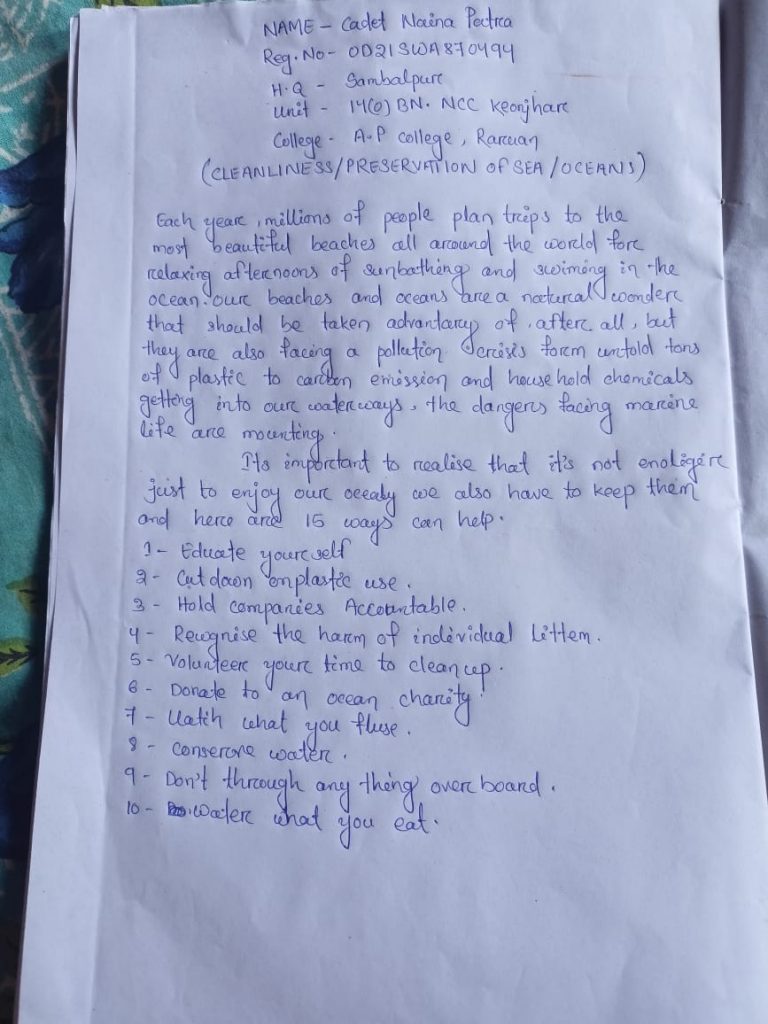 NAME - Cadet Naina Patra
Reg. No - OD21SWA870494
H.Q - Sambalpure
Unit - 14(O) BN. NCC Keonjhare
College - A.P college, Raruan
(CLEANLINESS/PRESERVATION OF SEA/OCEANS)
Each yeare, millions of people plan treips to the
most beautiful beaches all around the world fore
relaxing afternoons of sunbathing and swiming in the
ocean. oure beaches and oceans are a natural wondere
that should be taken advantary of. aftere all, but
they are also facing a pollution creisis form untold tons
of plastic to carbon emission and household chemicals
getting into oure waterways, the dangers facing marine
life are mounting.
Its important to realise that it's not
just to enjoy oure we also have to keep them
and here are 15 ways can help.
1- Educate youreself
2- Cut down on plastic use.
3- Hold companies Accountable.
4- Recognise the harm of individual Littem.
5- Volunteere youre time to clean up.
6- Donate to an ocean charity.
7- Watch what you fluse.
8- Conserve watere.
9- Don't through any thing overe board.
10- Watere what you eat.